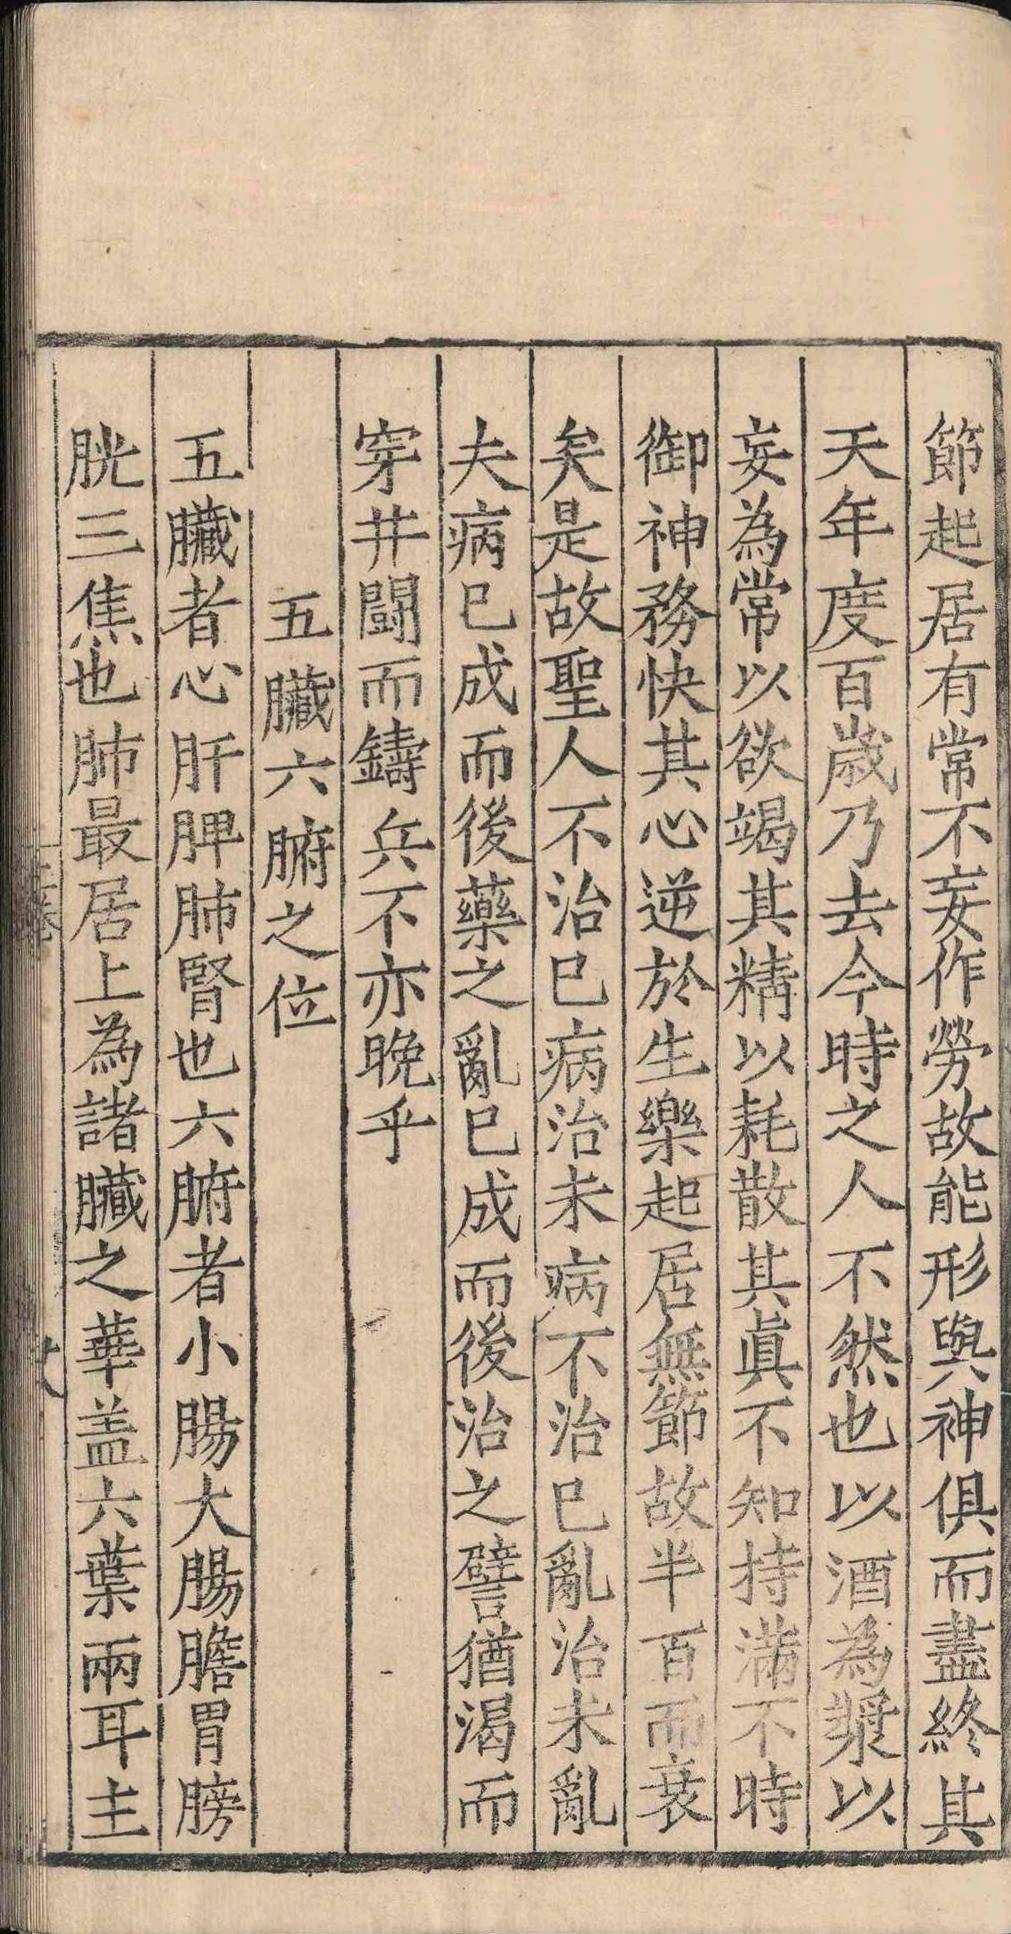 節起居有常不妄作勞故能形與神俱而盡終其
天年度百歲乃去今時之人不然也以酒為漿以
妄為常以欲竭其精以耗散其眞不知持滿不時
御神務快其心逆於生樂起居無節故半百而衰
矣是故聖人不治已病治未病不治已亂治未亂
夫病已成而後藥之亂已成而後治之譬猶渴而
穿井鬪而鑄兵不亦晚乎
五臟六腑之位
五臟者心肝脾肺腎也六腑者小腸大腸膽胃膀
胱三焦也肺最居上為諸臟之華盖六葉兩耳主